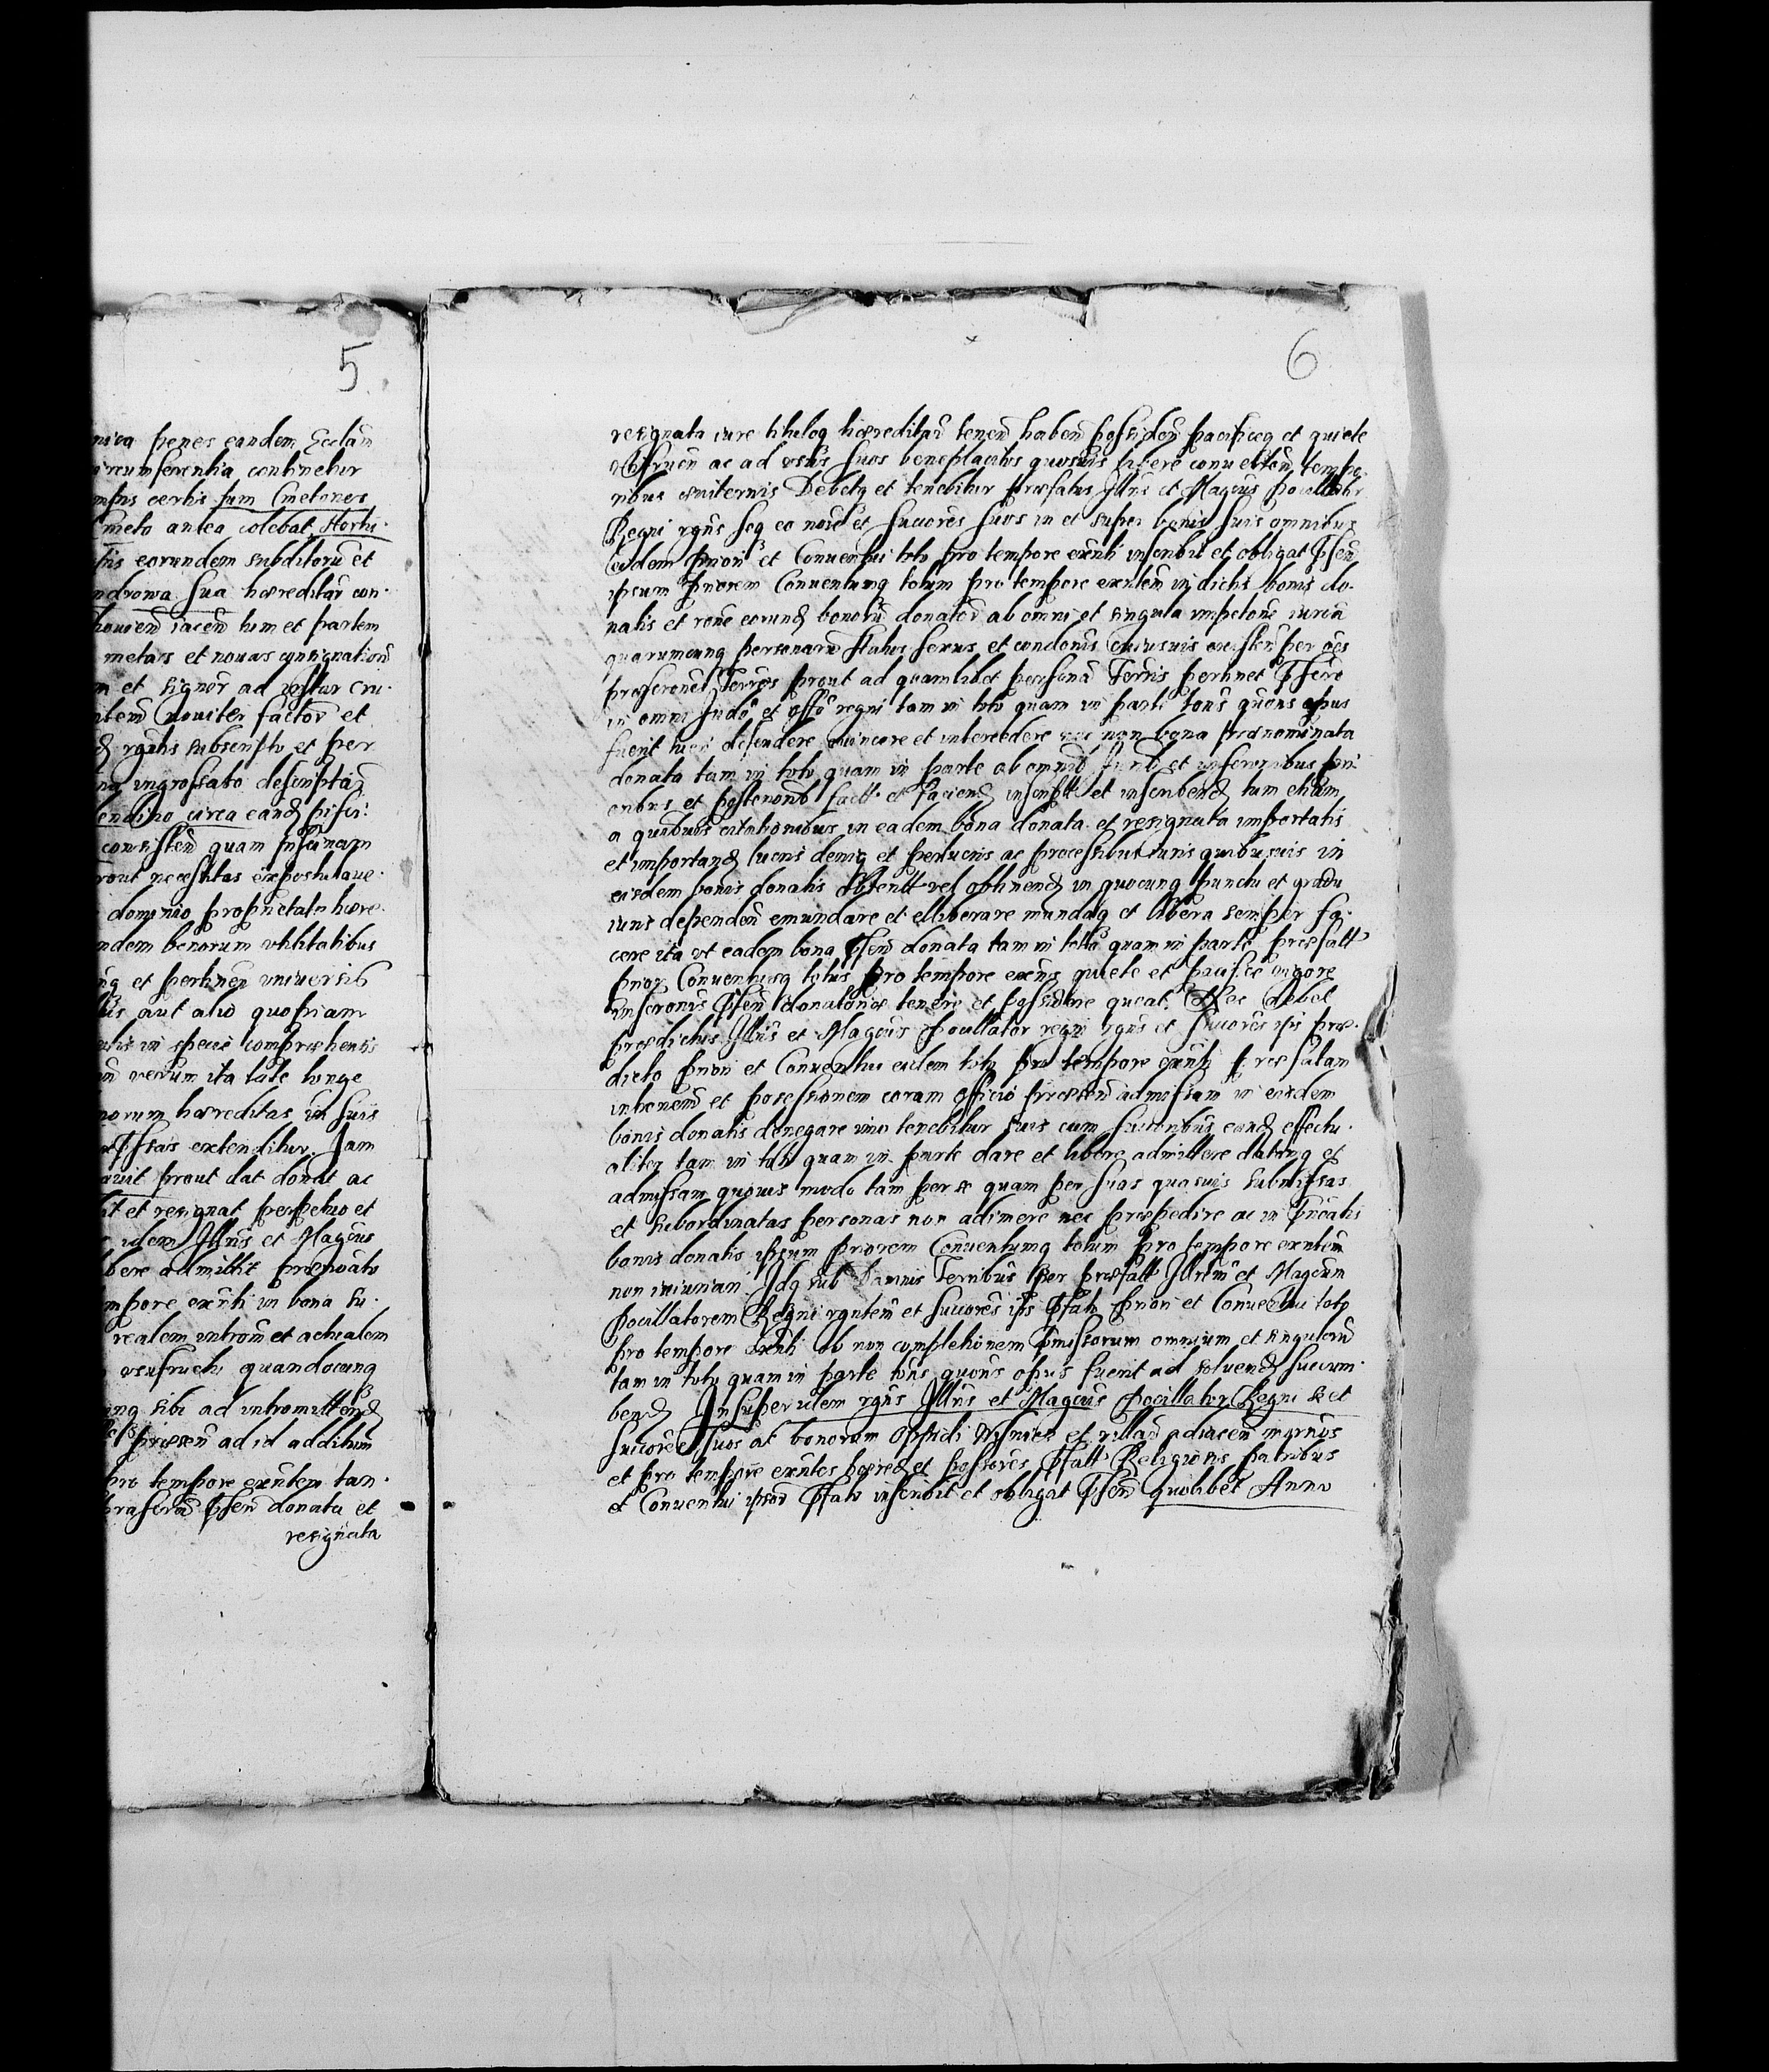 5
nica penes eandem Ecclām
circumferentia continetur
certis sum Cmetones
meto antea colebat, Horti
tis eorundem subditorū et
ndrowa sua hæreditār con-
iacen̄ tum et partem
metas et nouas consignation̄
m et signor̄ ad instar cru-
noviter factor̄ et
rgn̄tis subscripto et per
ingrossato descriptā
circa eand piſci-
consisten̄ quam piscinam
rout necessitas expostulaue-
dominio proprietate hære-
ndem bonorum vtilitatibus
nq et pertinen̄ vniuersis
aut alio quopiam
in specie comprehensis
verum ita late longe
norum hæreditas in suis
extenditur. Jam
auit prout dat donat ac
it et resignat perpetuo et
idem Illris et Magcus
bere admittit præfato
mpore exn̄ti in bona su-
realem introm̄ et actualem
vsufructu quandocunq
nq sibi ad intromittend
præsen̄ ad id additum
pro tempore exn̄tem tan-
pſen̄ donata et
resignata
6
resignata iure tituloq hæreditar̄ tenen̄ haben̄ possiden̄ pacificeq et quiete
vtifruen̄ ac ad vsus suos beneplacitos quosuis libere conuerten̄ tempo-
ribus æuiternis Debetq et tenebitur præfatus Illris et Magcus Pocillator
Regni rgn̄s seq eo noīe et succōres suos in et super bonis suis omnibus
eidem Priori et Conuentui toto pro tempore exn̄ti inscribit et obligat pſen̄
ipsum Priorem Conuentumq totum pro tempore exn̄tem in dictis bonis do-
natis et rōne eorund bonorū donator̄ ab omni et singula impetōne iuriū
quarumcunq personarū status sexus et condōnis cuiusuis existen̄ per oēs
præscrōnes Terrēs prout ad quamlibet personā Terris pertinet pſere
in omni Judō et offō regni tam in toto quam in parte totīs quotīs opus
fuerit tueri defendere euincere et intercedere nec non bona prænominata
donata tam in toto quam in parte ab omnib et inscrōnibus pri-
oribus et posteriorib factt et faciend inscriptt et inscribend tum etiam
a quibusuis citationibus in eadem bona donata et resignata importatis
et importand lucris deniq et perlucris ac processibus iuris quibusuis in
eisdem bonis donatis obtentt vel obtinend in quocunq puncto et gradu
iuris dependen̄ emundare et elliberare mundaq et libera semper fa-
cere ita vt eadem bona pſen̄ donata tam in toto quam in parte præfatt
Prior Conuentusq totus pro tempore exn̄s quiete et pacifice vigore
inscrōnis pſen̄ donatoriæ tenere et possidere queat. Nec debet
prædictus Illris et Magcus Pocillator regni rgn̄s et succōres ipīs præ-
dicto Priori et Conuentui eidem toto pro tempore exn̄ti præfatam
intromīm et possessionem coram officio præsen̄ admissam in eisdem
bonis donatis denegare imo tenebitur suis cum succōribus eand effectu-
aliter tam in toto quam in parte dare et libere admittere datamq et
admissam quouis modo tam per se quam per suas quasuis submissas
et subordinatas personas non adimere nec præpedire ac in
bonis donatis ipsum Priorem Conuentumq totum pro tempore exn̄tem
non iniuriari Idq sub Damnis Terribus per præfatt Illrem et Magcum
Pocillatorem Regni rgn̄tem et succōres ipīs pſato Priori et Conuentui toto
pro tempore exn̄ti ob non completionem pmissorum omnium et singulorū
tam in toto quam in parte totīs quotīs opus fuerit ad soluend succum-
bend Insuper idem rgn̄s Illris et Magcus Pocillator Regni se et
succōres suos ac bonorum Oppidi Wisnicz et villar̄ adiacen̄
et pro tempore exn̄tes hæred et possōres pſatt Religiosis patribus
et Conuentui ipsor̄ pſato inscribit et obligat pſen̄ quolibet Anno